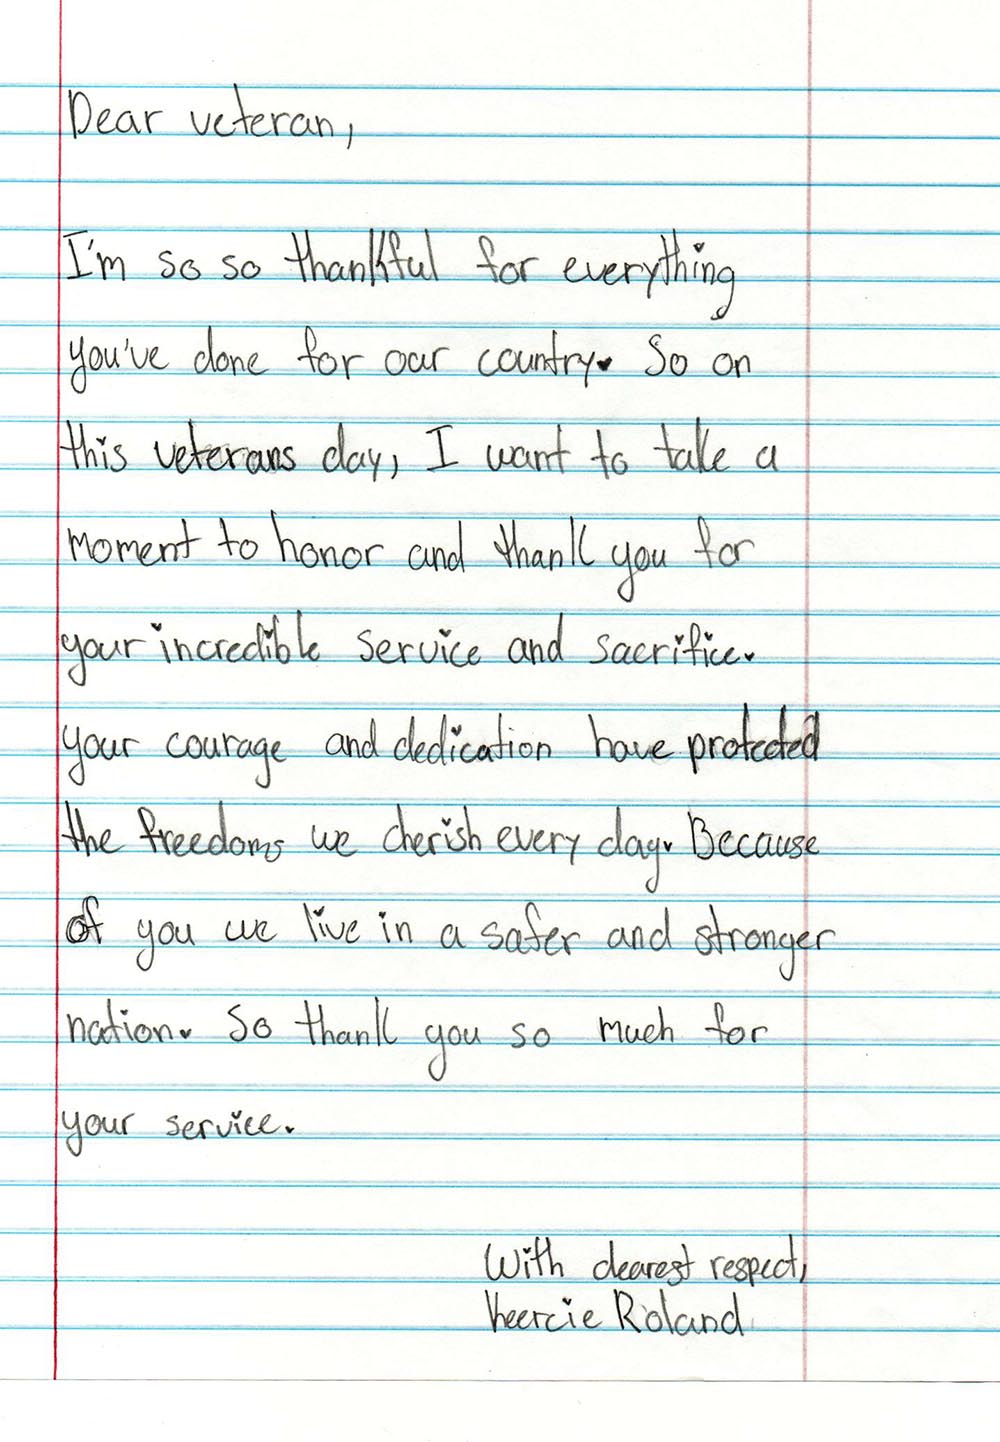 Dear veteran,
I'm so so thankful for everything
you've done for our country. So on
this veterans day, I want to take a
moment to honor and thank you for
your incredible service and sacrifice.
your courage and dedication have protected
the freedoms we cherish every day. Because
of you we live in a safer and stronger
nation. So thank you so much for
your service.
With dearest respect,
Roland